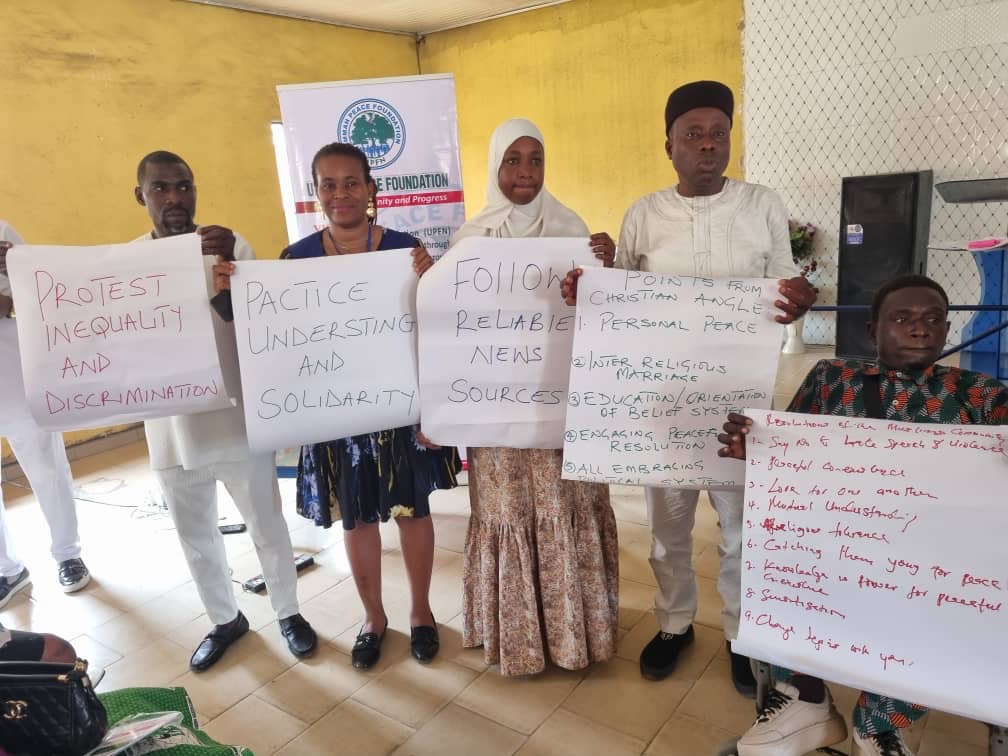 MMAH PEACE FOUNDATION
UPFN
PEACE FOUNDATION
nity and Progress
PEACE FO
(UPFN)
through
PROTEST
INEQUALITY
AND
DISCRIMINATION
PACTICE
UNDERSTING
AND
SOLIDARITY
FOLLOW
RELIABLE
NEWS
SOURCES
POINTS FROM
CHRISTIAN ANGLE
1. PERSONAL PEACE
2) INTER RELIGIOUS
MARRIAGE
3) EDUCATION/ORIENTATION
OF BELIEF SYSTEM
4) ENGAGING PEACEFUL
RESOLUTION
5) ALL EMBRACING
POLITICAL SYSTEM
Resolutions of the Muslims Commun
1. Say No to hate Speech & Violence
2. Peaceful Coexistence
3. Look for one another
4. Mutual Understanding
5. Religious tolerance
6. Catching them young for peace
7. Knowledge is power for peaceful
8. Sensitisation
9. Change begins with you.